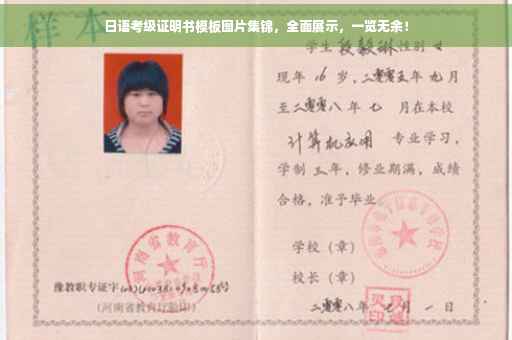 日语考级证明书模板图片集锦，全面展示，一览无余！
样本
学生 段毅琳 性别 女
现年 16 岁，二零零五年 九月
至二零零八年 七 月在本校
计算机应用 专业学习，
学制 三 年，修业期满，成绩
合格，准予毕业。
学校（章）
校长（章）
二零零八年 七 月 一 日
河南省教育厅
豫教职专证字
（河南省教育厅验印）